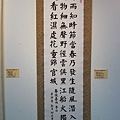 雨知時節當春乃發生隨風潛入
物細無聲野徑雲俱黑江船火獨
看紅濕處花重錦官城